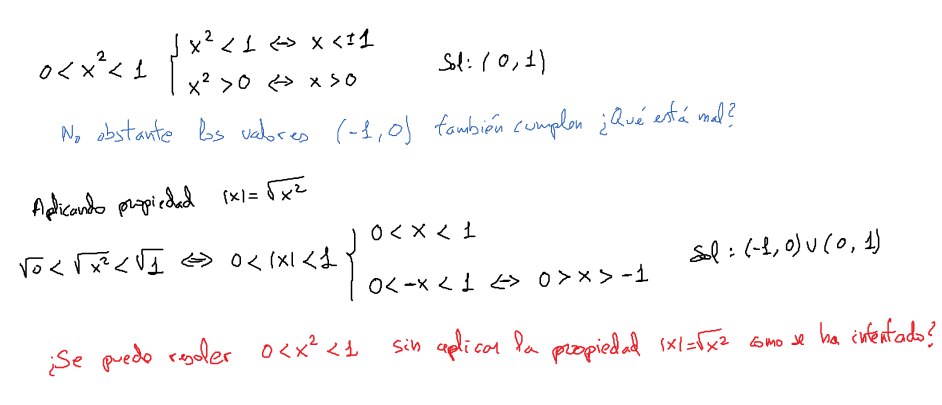 0 < x² < 1 { x² < 1 ⇔ x < ±1
x² > 0 ⇔ x > 0
Sol: (0, 1)
No obstante los valores (-1, 0) también cumplen ¿Qué está mal?
Aplicando propiedad |x| = √x²
√0 < √x² < √1 ⇔ 0 < |x| < 1 { 0 < x < 1
0 < -x < 1 ⇔ 0 > x > -1
Sol: (-1, 0) ∪ (0, 1)
¿Se puede resolver 0 < x² < 1 sin aplicar la propiedad |x| = √x² como se ha intentado?